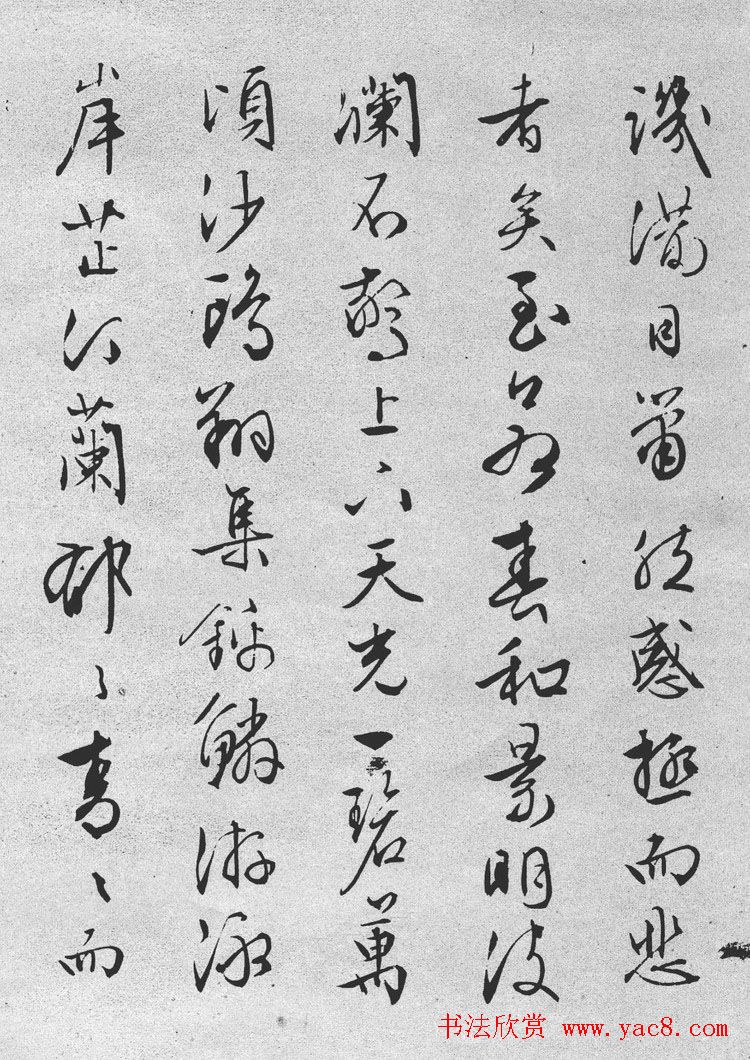 譏滿目蕭然感極而悲
者矣至若春和景明波
瀾不驚上下天光一碧萬
頃沙鷗翔集錦鱗游泳
岸芷汀蘭郁々青々而
书法欣赏 www.yac8.com